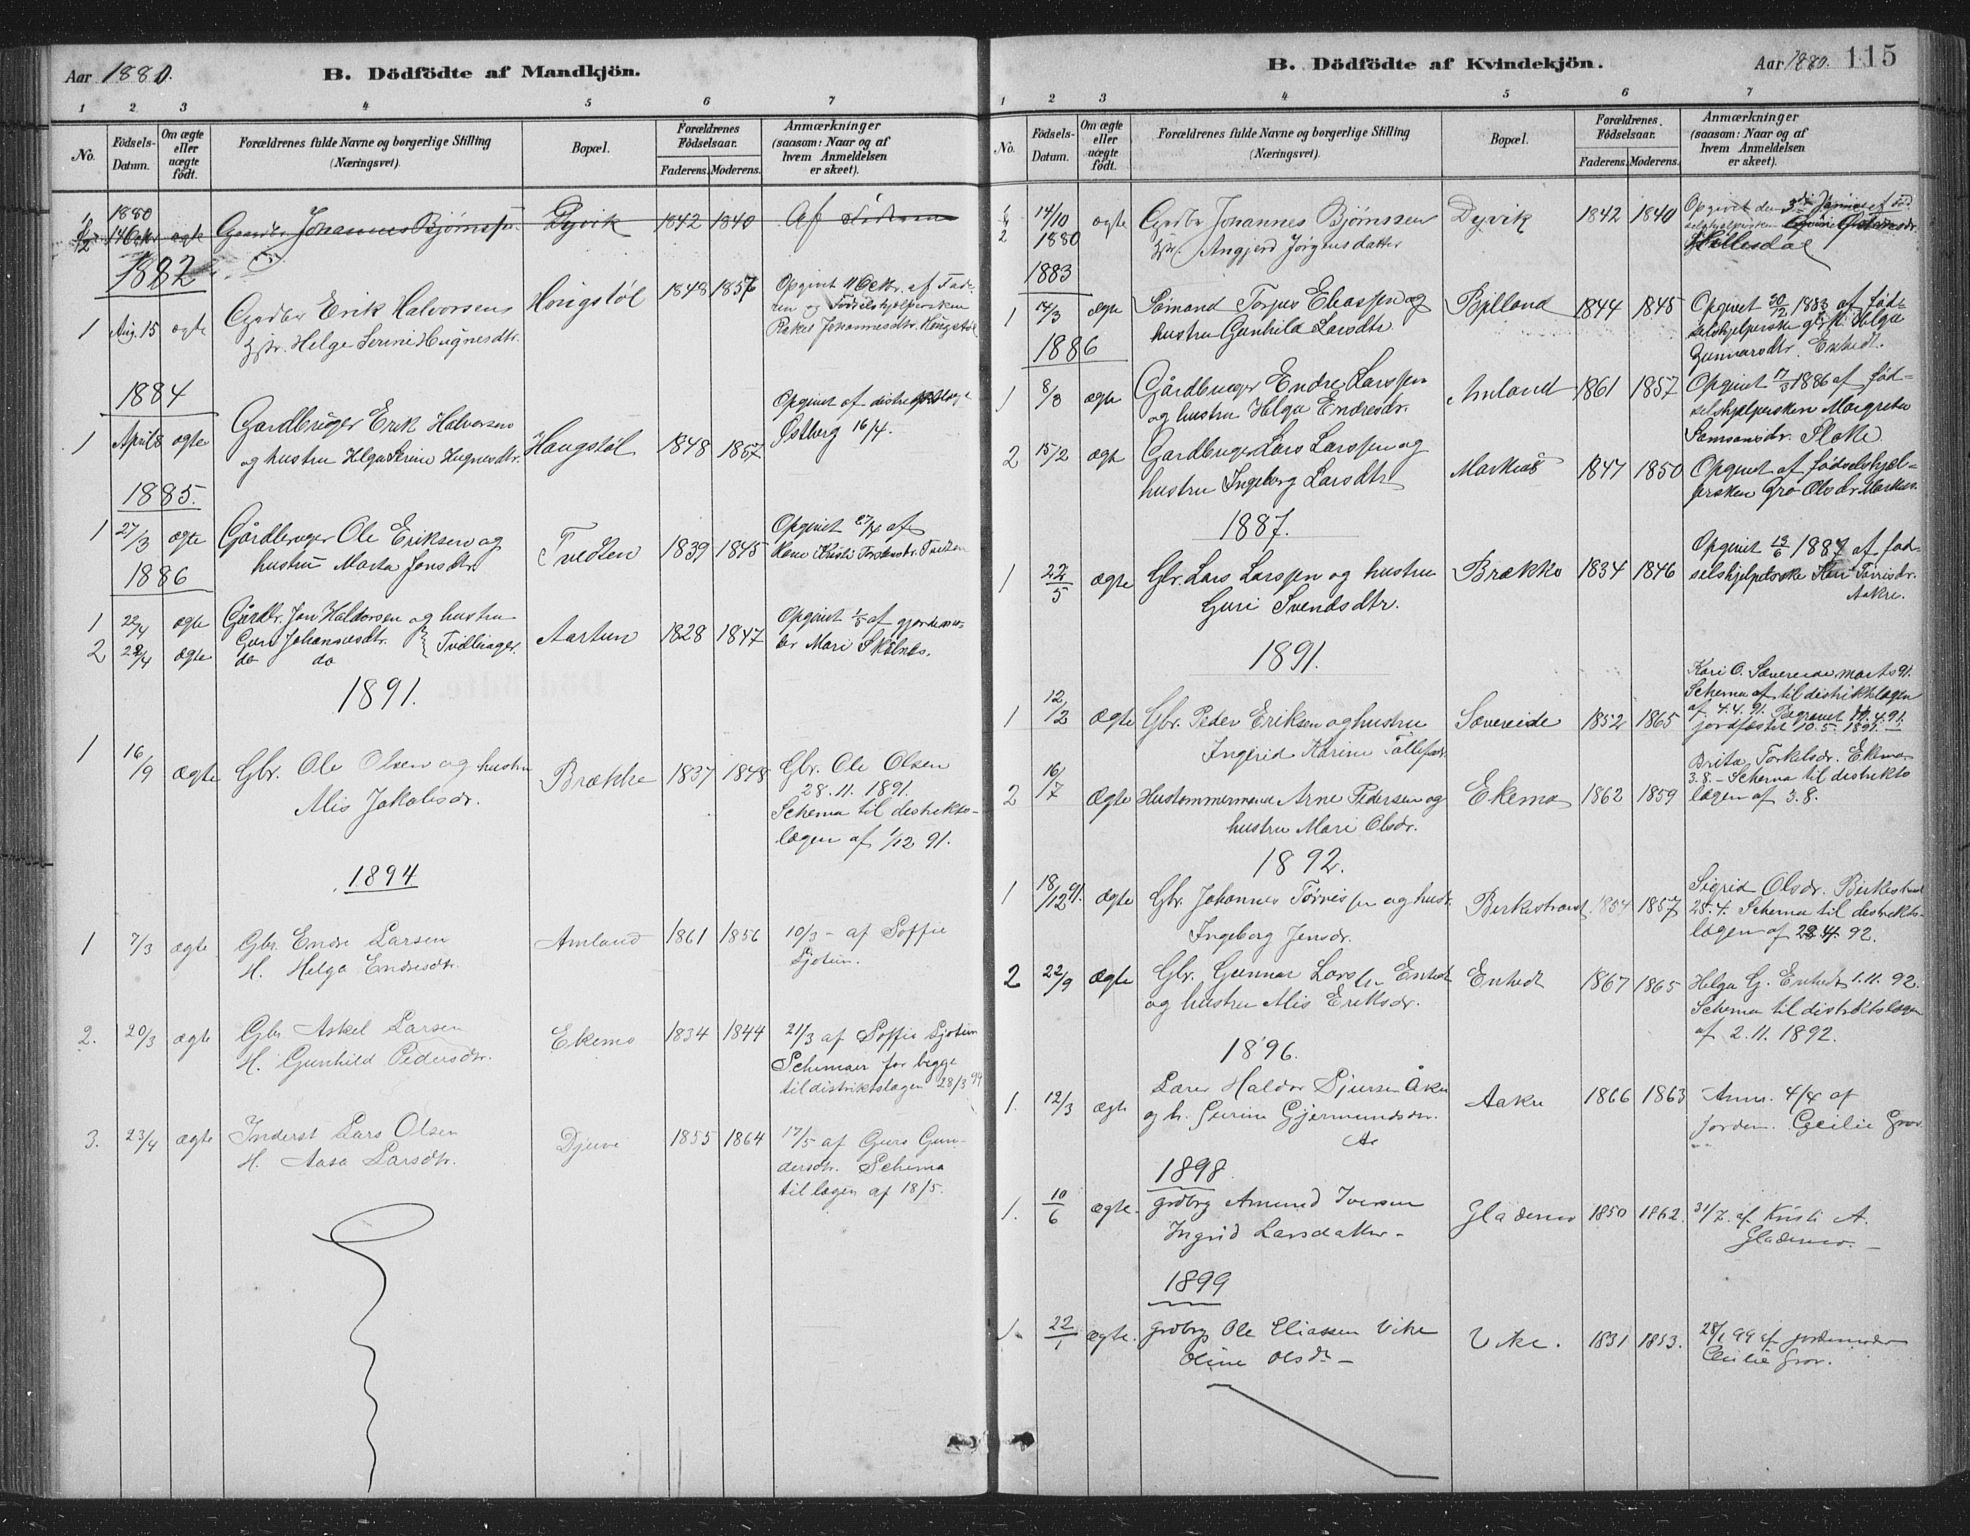 Aar 1880.
B. Dödfödte af Mandkjön.
1 2 3 4 5 6 7
No.
Födsels-Datum.
Om ægte eller uægte födt.
Forældrenes fulde Navne og borgerlige Stilling (Næringsvei).
Bopæl.
Forældrenes Födselsaar.
Faderens. Moderens.
Anmærkninger (saasom: Naar og af hvem Anmeldelsen er skeet).
1880
14 Octbr ægte Gaardbr Johannes Bjørnss. Dyvik 1842 1840 Af
1882
1 Aug. 15 ægte Gardbr Erik Halvorsen Hougstøl 1848 1857 Opgivet 11 Octbr. af Fade-
hstr. Helge Serine Hugnesdtr. ren og Fødselshjelpersken
Johannesdtr. Hougstøl
1884
1 April 8 ægte Gardbruger Erik Halvorsen Hougstøl 1848 1857 Opgivet af distr
og hustru Helga Serine Hugnesdtr. Østberg 16/4.
1885.
1 27/3 ægte Gårdbruger Ole Eriksen og Tvedten 1839 1845 Opgivet 27/4 af
hustru Marta Jonsdtr. Kone Kristi Tvedten
1886
1 22/4 ægte Gårdbr. Jon Haldorsen og hustru Aartun 1828 1847 Opgivet 1/5 af gjordemo-
2 22/4 ægte Guri Johannesdtr. Tvillinger. der Mari Skålnes.
do do
1891.
1 16/9 ægte Gbr. Ole Olsen og hustru Brække 1837 1848 Gbr. Ole Olsen
Alis Jakobsdr. 28.11.1891.
Schema til distrikts-
lægen af 1/12 91.
1894
1 7/3 ægte Gbr. Endre Larsen Amland 1861 1856 10/3 - af Soffie
H. Helga Endresdtr. Sjotun.
2. 20/3 ægte Gbr Askel Larsen Ekemo 1834 1844 21/3 af Soffie Sjotun
H. Gunhild Pedersdtr. Schemaer for begge
til distriktslægen 28/3 94
3. 23/4 ægte Inderst Lars Olsen Djuve 1855 1864 17/5 af Guro Gun-
H. Aasa Larsdtr. dersdtr. Schema
til lægen af 18/5.
B. Dödfödte af Kvindekjön.
Aar 1880. 115
1 2 3 4 5 6 7
No.
Födsels-Datum.
Om ægte eller uægte födt.
Forældrenes fulde Navne og borgerlige Stilling (Næringsvei).
Bopæl.
Forældrenes Födselsaar.
Faderens. Moderens.
Anmærkninger (saasom: Naar og af hvem Anmeldelsen er skeet).
14/10 1880 ægte Gardbr Johannes Bjørnssen Dyvik 1842 1840 Opgivet den 3die Januar af fød
hstr. Angjerd Jørgensdatter selshjelpersken
Hellesdal
1883
1 17/3 ægte Sømand Torjus Eliassen og Bjelland 1844 1845 Opgivet 30/12 1883 af fød-
hustru Gunhild Larsdtr selshjelperske Helga
Gunnarsdtr. Enhedt.
1886
1 8/3 ægte Gårdbruger Endre Larssen Amland 1861 1857 Opgivet 17/3 1886 af fød-
og hustru Helga Endresdr. selshjelpersken Margreta
Samsonsdr. Floke.
2 15/2 ægte Gardbruger Lars Larssen og Markus 1847 1850 Opgivet af fødselshjel-
hustru Ingeborg Larsdtr persken Gro Olsdr Markus.
1887.
1 22/5 ægte Gbr. Lars Larssen og hustru Brække 1834 1846 Opgivet 19/6 1887 af fød-
Guri Svendsdtr. selshjelperske Kari Torrisdr.
Aakre.
1891.
1 12/3 ægte Gbr. Peder Eriksen og hustru Sævereide 1852 1865 Kari O. Sævereide marts 91.
Ingerid Karine Tollefsdr. Schema af til distriktslægen
af 4.4.91. Begravet 14.4.91.
jordfæstet 10.5.1891.
2 16/7 ægte Hustømmermand Arne Pedersen og Ekemo 1862 1859 Brita Torkelsdr. Ekemo
hustru Mari Olsdr. 3.8. - Schema til distrikts
lægen af 3.8.
1892.
1 18/12 91. ægte Gbr. Johannes Tørrissen og hustr. Birkestrand 1854 1857 Sigrid Olsdr. Birkestrand
Ingeborg Jensdr. 25.4. Schema til distrikts-
lægen af 28.4.92.
2 22/9 ægte Gbr. Gunnar Larss. Enhedt Enhedt 1867 1865 Helga G. Enhedt 1.11.92.
og hustru Alis Eriksdr. Schema til distriktslægen
af 2.11.1892.
1896.
1. 12/3 ægte Lærer Haldor Sjursen Åkre Aakre 1866 1863 Anm. 4/4 af
og h. Serine Gjermundsdtr. jordem. Cecilie Grov.
1898.
1. 10/6 ægte. grdbrg Amund Iversen Gladeno 1850 1862. 31/7. af Kristi A.
Ingrid Larsdatter -
1899
1. 22/1 ægte. grdbrg Ole Eliassen Vike Vike. 1831 1853. 28/1 99 af jordemoder
Oline Olsdr - Cecilie Grov.